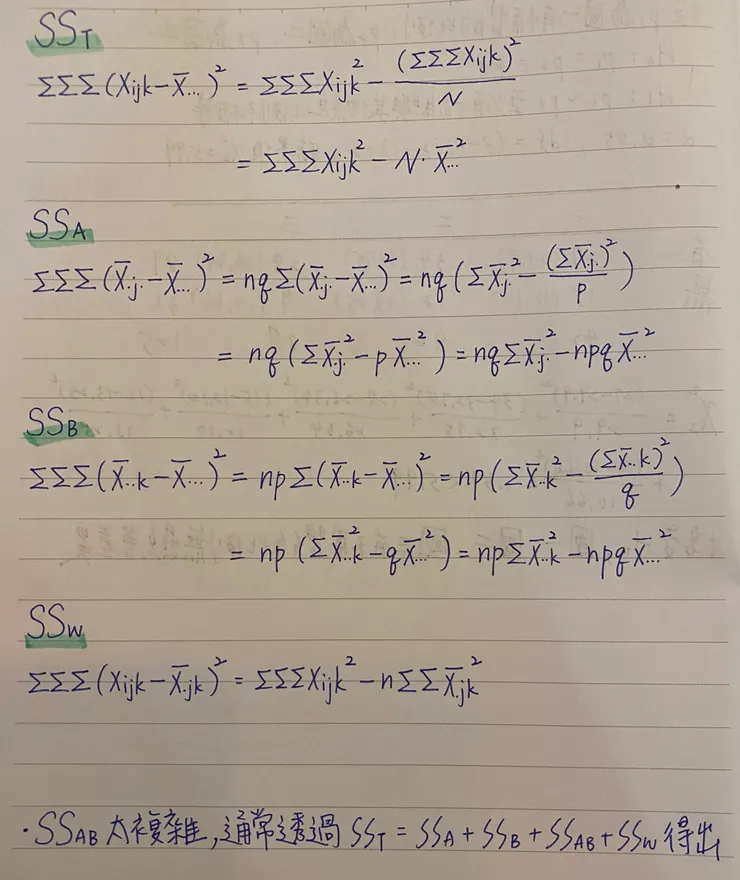 SS_T
ΣΣΣ(Xijk-X̄...)² = ΣΣΣXijk² - (ΣΣΣXijk)²/N
= ΣΣΣXijk² - N·X̄...²
SS_A
ΣΣΣ(X̄.j.-X̄...)² = nqΣ(X̄.j.-X̄...)² = nq(ΣX̄.j.² - (ΣX̄.j.)²/p)
= nq(ΣX̄.j.² - pX̄...²) = nqΣX̄.j.² - npqX̄...²
SS_B
ΣΣΣ(X̄..k-X̄...)² = npΣ(X̄..k-X̄...)² = np(ΣX̄..k² - (ΣX̄..k)²/q)
= np(ΣX̄..k² - qX̄...²) = npΣX̄..k² - npqX̄...²
SS_W
ΣΣΣ(Xijk-X̄.jk)² = ΣΣΣXijk² - nΣΣX̄.jk²
·SS_AB太複雜,通常透過 SS_T = SS_A + SS_B + SS_AB + SS_W 得出